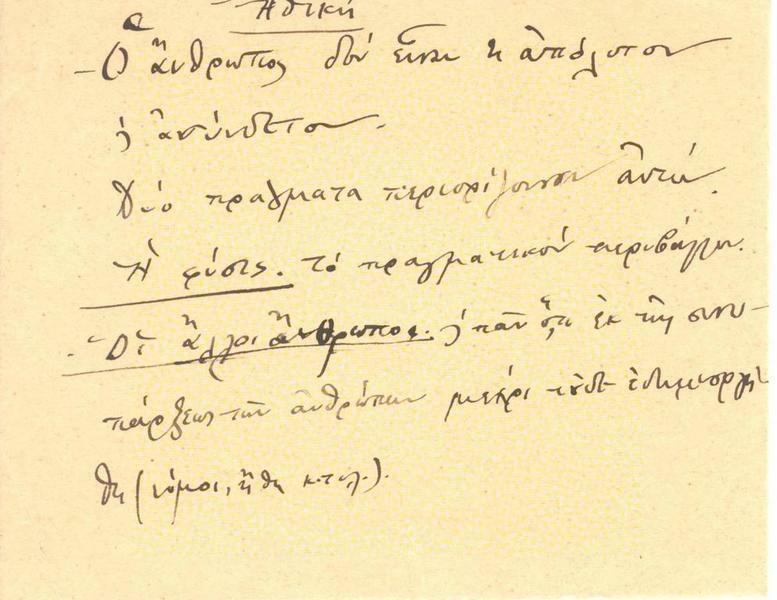 Ἠθική
– Ὁ ἄνθρωπος δέν εἶναι τι ἀπόλυτον
ἤ ἀσύνδετον.
Δύο πράγματα περιορίζουσιν αὐτόν.
Ἡ φύσις. τό πραγματικόν περιβάλλον.
– Οἱ ἄλλοι ἄνθρωποι. ἤ πᾶν ὅ,τι ἐκ τῆς συνυ-
πάρξεως τῶν ἀνθρώπων μέχρι τοῦδε ἐδημιουργή-
θη (νόμοι, ἤθη κ.τ.λ.).